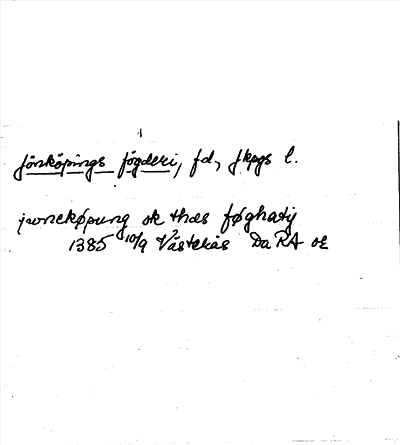 Jönköpings fögderi, fd, Jkpgs l.
junekøpung ok thæs føghati
1385 10/9 Västerås Da RA or